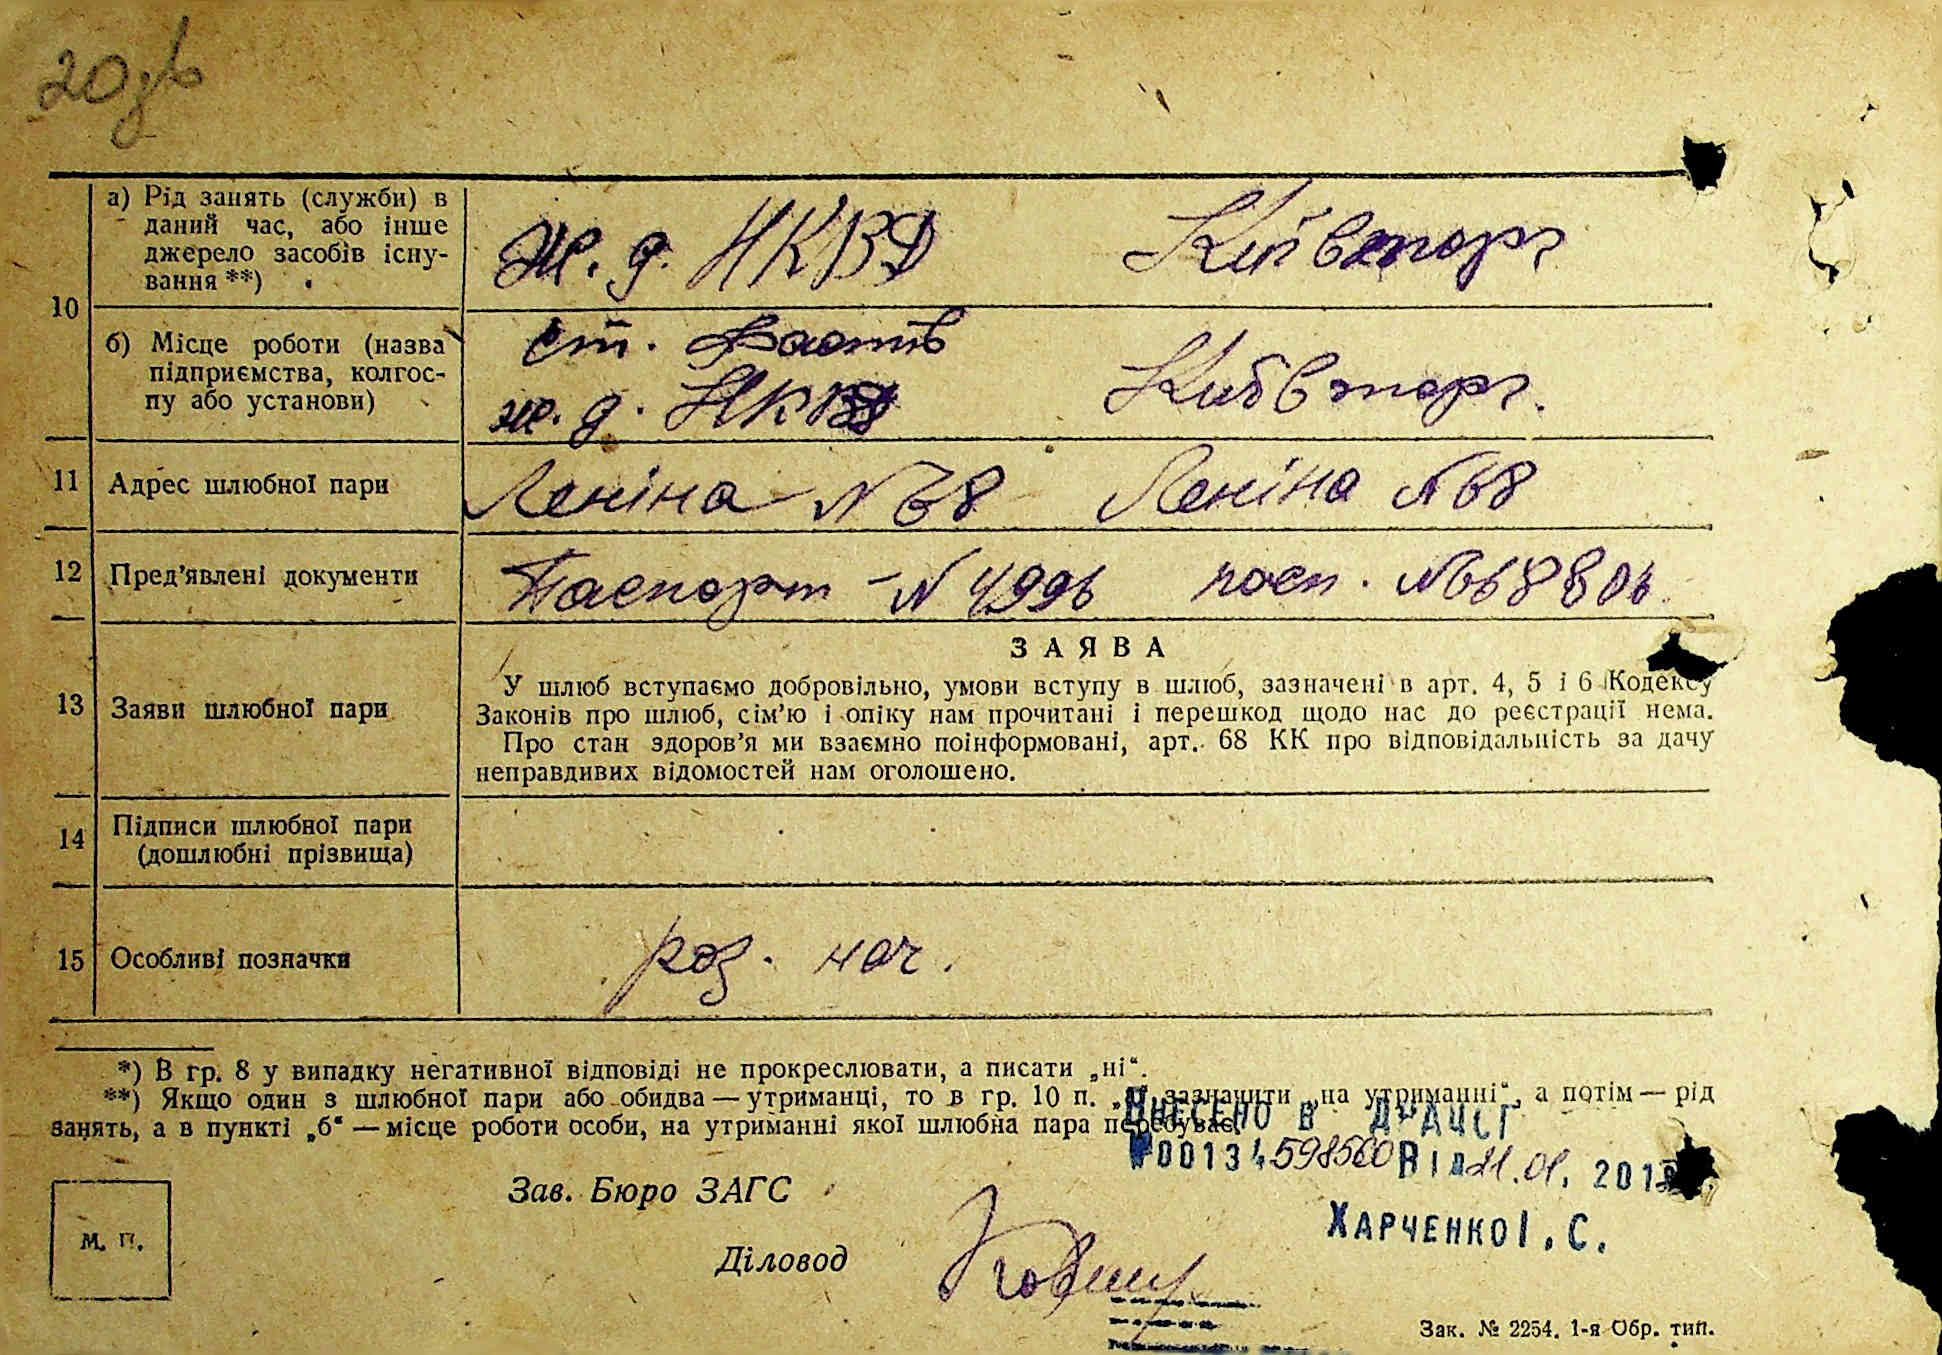 20зв
а) Рід занять (служби) в
даний час, або інше
джерело засобів існу-
вання **)
Ж. д. НКВД Київторг
10
б) Місце роботи (назва
підприємства, колгос-
пу або установи)
ст. Фастів
ж. д. НКВД Київторг.
11 Адрес шлюбної пари Леніна № 68 Леніна № 68
12 Пред'явлені документи Паспорт - № 4996 пасп.
13 Заяви шлюбної пари
ЗАЯВА
У шлюб вступаємо добровільно, умови вступу в шлюб, зазначені в арт. 4, 5 і 6 Кодексу
Законів про шлюб, сім'ю і опіку нам прочитані і перешкод щодо нас до реєстрації нема.
Про стан здоров'я ми взаємно поінформовані, арт. 68 КК про відповідальність за дачу
неправдивих відомостей нам оголошено.
14 Підписи шлюбної пари
(дошлюбні прізвища)
15 Особливі позначки роз. нач.
*) В гр. 8 у випадку негативної відповіді не прокреслювати, а писати „ні“.
**) Якщо один з шлюбної пари або обидва — утриманці, то в гр. 10 п. зазначити „на утриманні“, а потім — рід
занять, а в пункті „б“ — місце роботи особи, на утриманні якої шлюбна пара перебуває.
ВНЕСЕНО В ДРАЦСГ
№00134598560 Від 21.01.
Зав. Бюро ЗАГС
ХАРЧЕНКО І. С.
М. П.
Діловод
Зак. № 2254. 1-я Обр. тип.